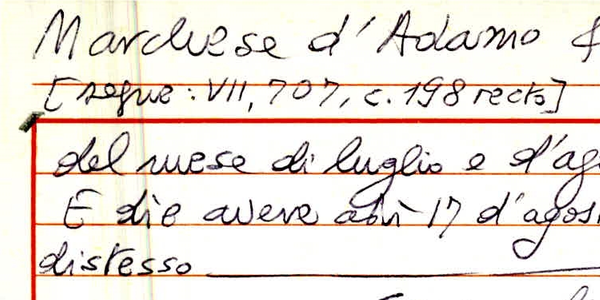 Marchese d'Adamo
[segue: VII, 707, c. 198 recto]
del mese di luglio e d'ag
E die avere adì 17 d'agos
distesso